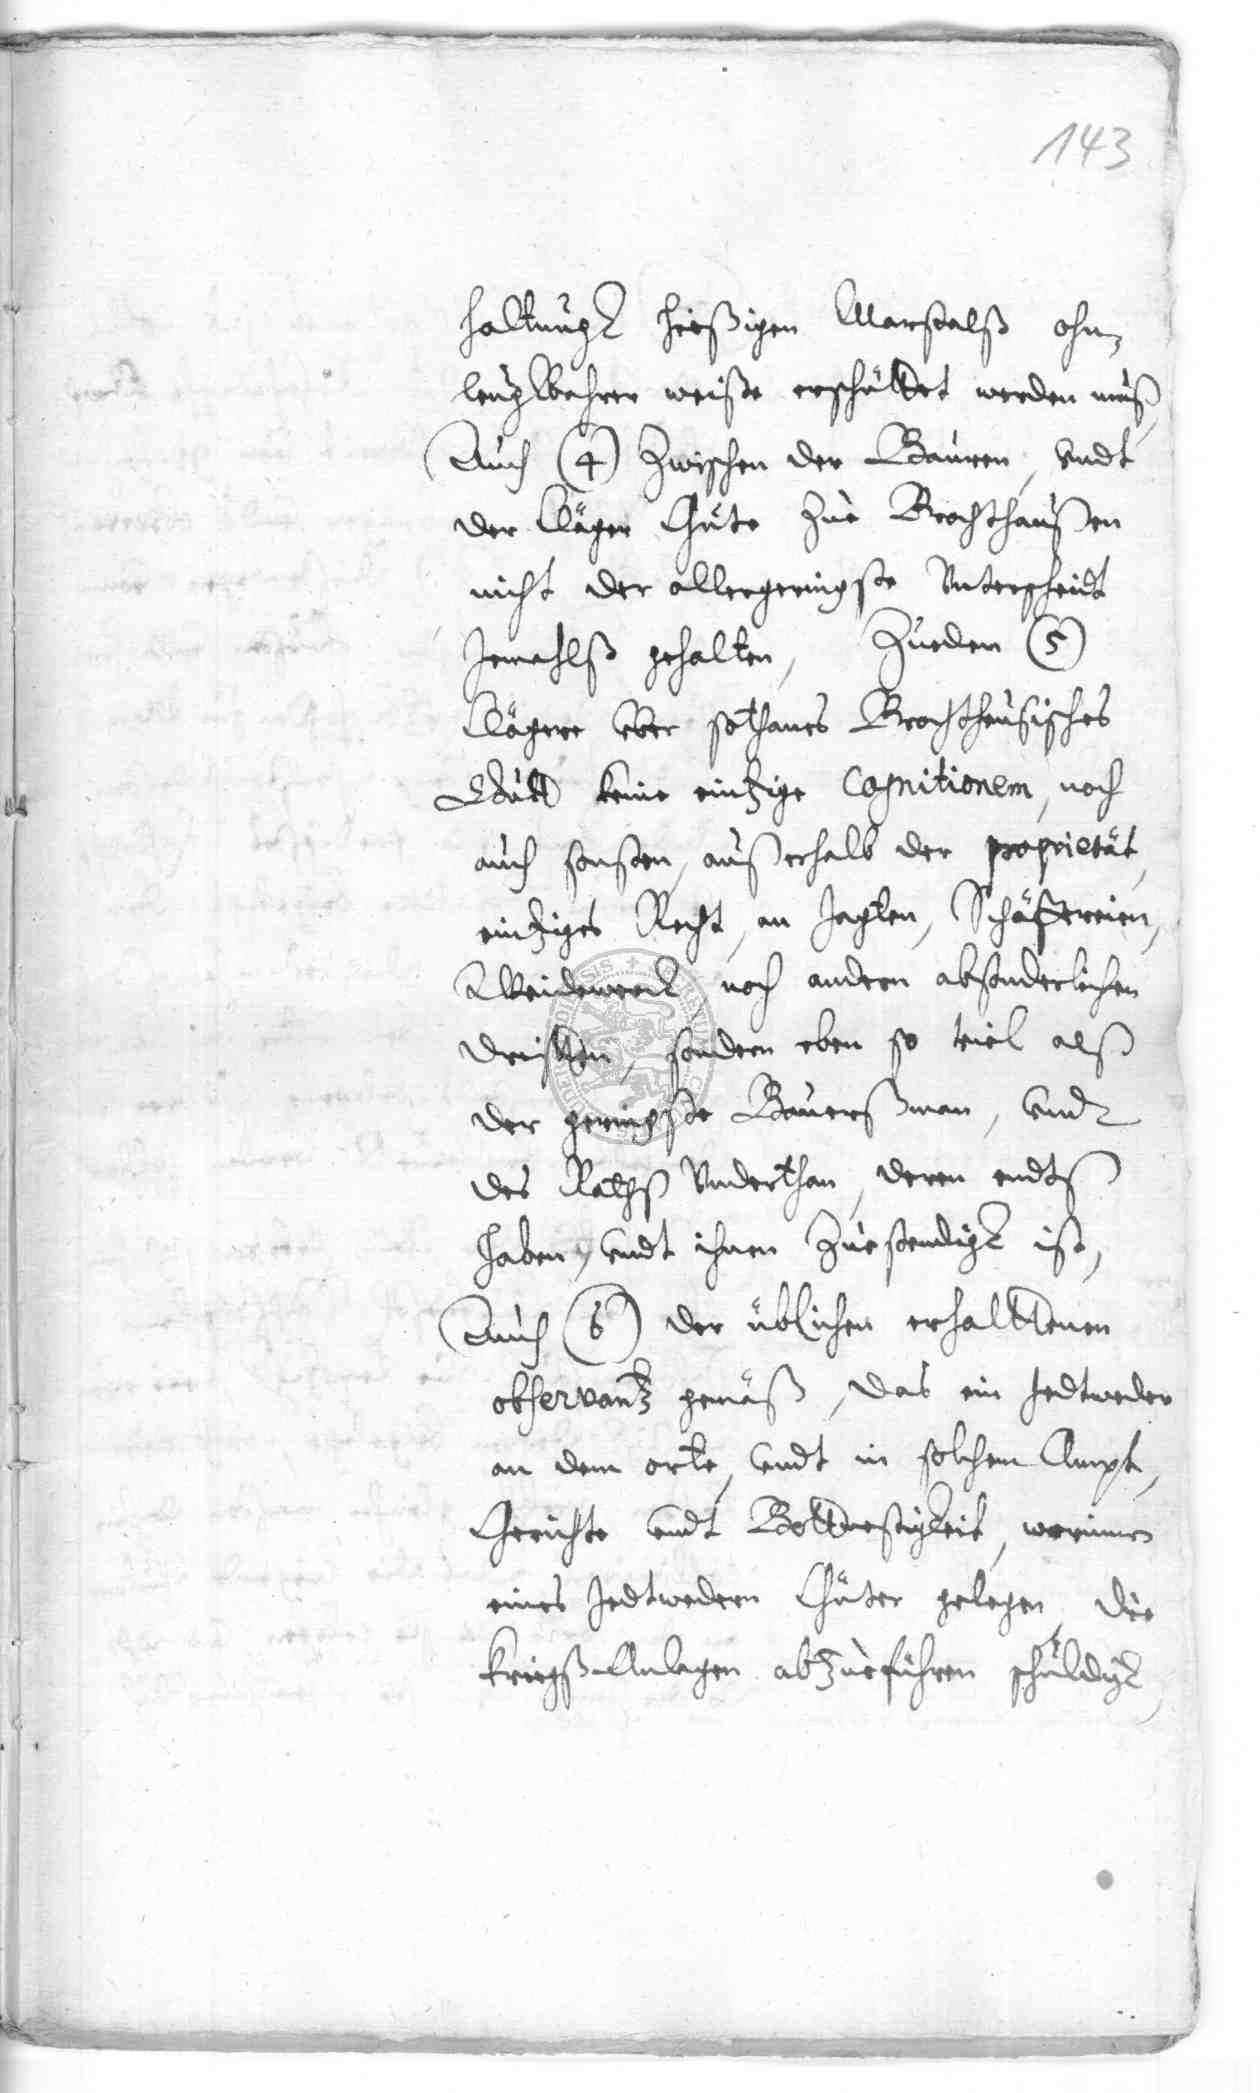 143
haltung hießigen Marstalß ohn=
leugbahrer weiße erschüttet werden muß,
Auch (4) Zwischen der Bauren, vndt
der Cläger Güte Zue Brochthaußen
nicht der allergeringste Vnterscheidt
Jemahlß gehalten, Zueden (5)
Clägere vber sothanes Brochtheusisches
Guth keine eintzige Cognitionem, noch
auch sonsten, außerhalb der proprietät,
eintziges Recht, an Jagten, Schäffereien,
Weidewerck noch andern absonderlichen
Triften, sondern eben so viel alß
der geringste Bauerßman, vndt
des Rathß Vnderthan, deren endtß
haben, vndt ihnen Zuestendigk ist,
Auch (6) der üblichen erhaltenen
observantz gemäß, das ein Jedtweder
an dem orte, vndt in solchem Ampt,
Gerichte vndt Bottmeßigkeit, worinnen
eines Jedtwedern Güter gelegen, die
Kriegß Anlagen abZueführen schuldigk,